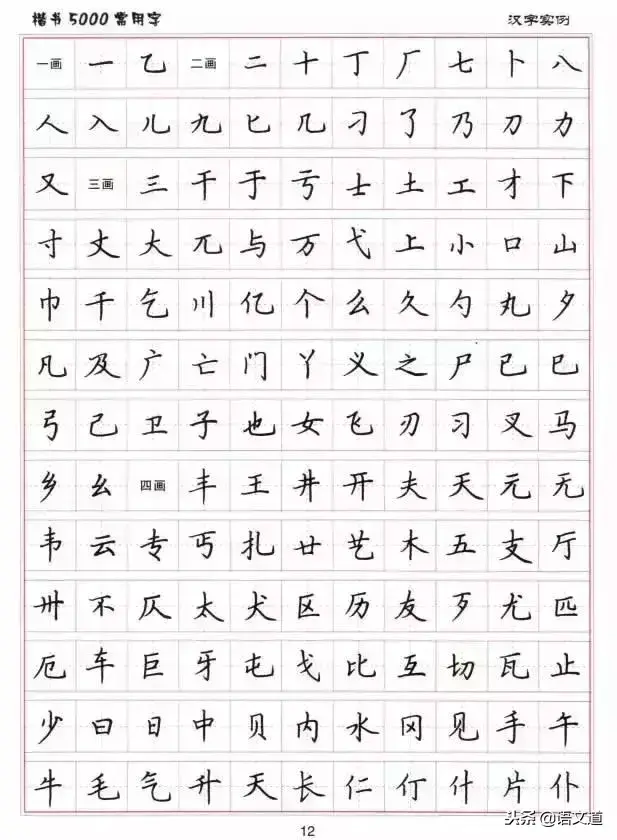 楷书5000常用字 汉字实例
一画 一 乙 二画 二 十 丁 厂 七 卜 八
人 入 儿 九 匕 几 刁 了 乃 刀 力
又 三画 三 干 于 亏 士 土 工 才 下
寸 丈 大 兀 与 万 弋 上 小 口 山
巾 千 乞 川 亿 个 么 久 勺 丸 夕
凡 及 广 亡 门 丫 义 之 尸 已 巳
弓 己 卫 子 也 女 飞 刃 习 叉 马
乡 幺 四画 丰 王 井 开 夫 天 元 无
韦 云 专 丐 扎 廿 艺 木 五 支 厅
卅 不 仄 太 犬 区 历 友 歹 尤 匹
厄 车 巨 牙 屯 戈 比 互 切 瓦 止
少 曰 日 中 贝 内 水 冈 见 手 午
牛 毛 气 升 夭 长 仁 仃 什 片 仆
12
头条@语文道